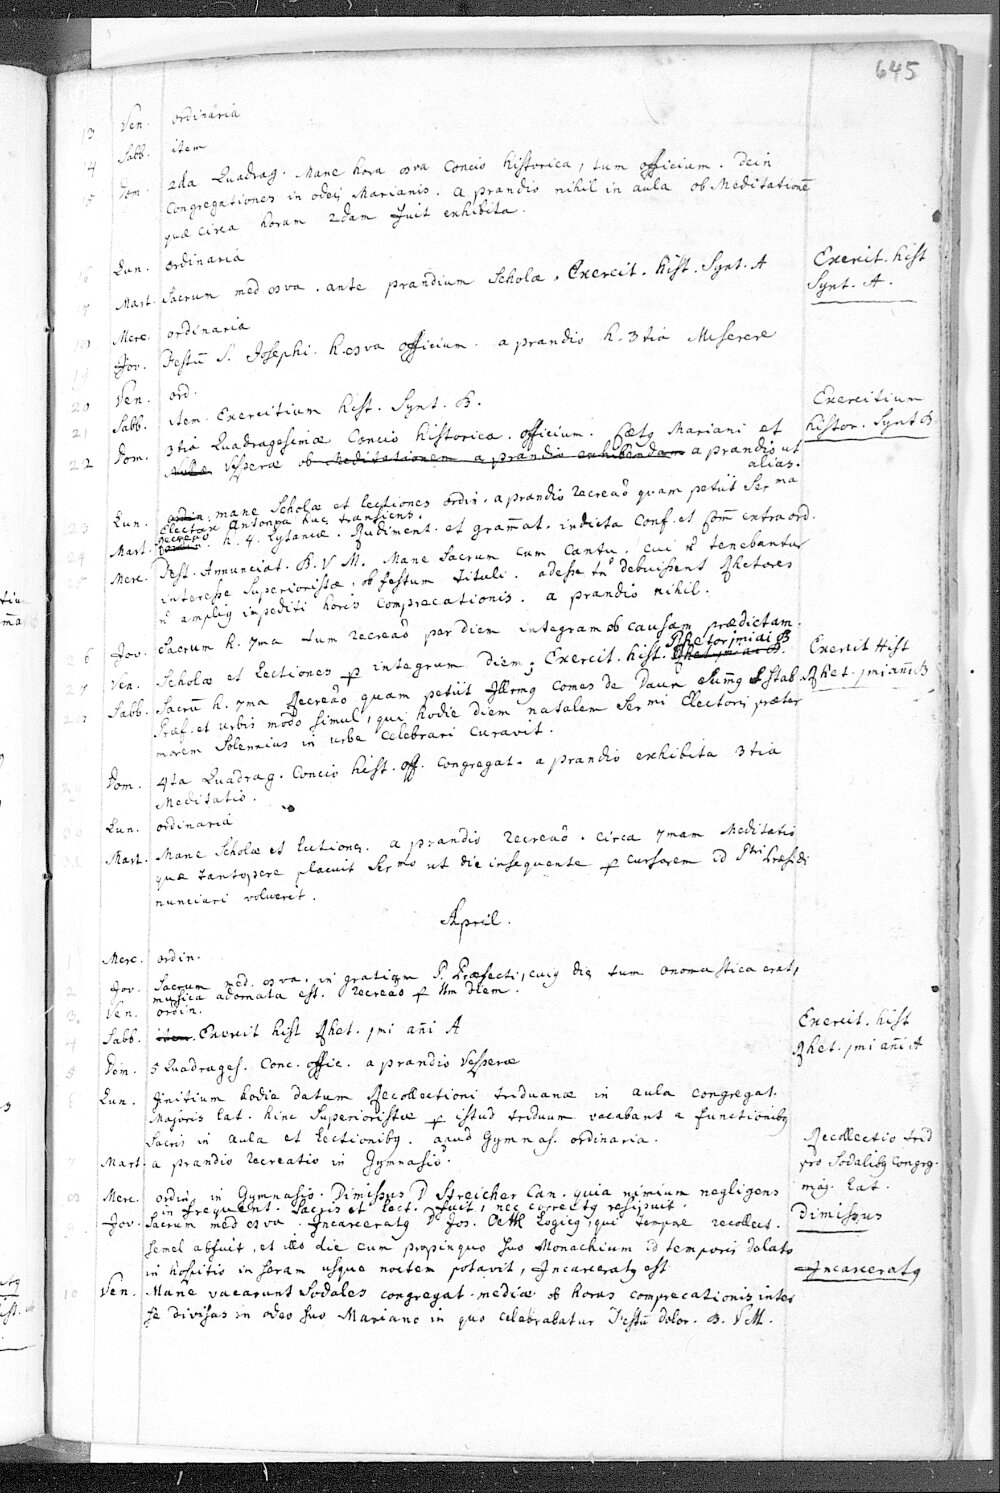 645
13 Ven. ordinaria
14 Sabb. item
15 Dom. 2da Quadrag. Mane hora 8va Concio historica, tum officium. Dein
Congregationes in odeis Marianis. a prandio nihil in aula ob Meditatione
quæ circa horam 2dam fuit exhibita.
16 Lun. ordinaria
17 Mart. Sacrum med 8va. ante prandium Scholæ, Exercit. hist. Synt. A
Exercit. hist
Synt. A.
18 Merc. ordinaria
19 Jov. Festū S. Josephi. h. 8va officium. a prandio h. 3tia Miserere
20 Ven. ord.
21 Sabb. item. Exercitium hist. Synt. B.
Exercitium
histor. Synt B
22 Dom. 3tia Quadragesimæ Concio historica. officium. Cætq Mariani et
Vesperæ ob Meditationem a prandio exhibendam a prandio ut
alias.
23 Lun. ordin. mane Scholæ et lectiones ordin. a prandio recreaō quam petiit Ser ma
Electrix Antonia huc transiens.
24 Mart. recreaō h. 4. Lytaniæ. Rudiment. et gram̄at. indicta Conf. et Com̄ extraord.
25 Merc. Fest. Annunciat. B. V M. Mane Sacrum cum Cantu. cui ñ tenebantur
interesse Superioristæ, ob festum tituli. adesse tn debuissent Rhetores
ñ ampliq impediti horis comprecationis. a prandio nihil.
6 Jov. Sacrum h. 7ma tum recreaō per diem integram ob causam prædictam.
27 Ven. Scholæ et lectiones p integrum diem; Exercit. hist. Rhetor jmi ai B
Exercit Hist
Rhet. jmi añi B
28 Sabb. Sacrū h. 7ma Recreaō quam petiit Illrmq Comes de Daun Sum̄q Stab
Præf. et urbis modo simul, qui hodie diem natalem Ser mi Electoris præter
morem Solennius in urbe celebrari curavit.
29 Dom. 4ta Quadrag. Concio hist. off. Congregat. a prandio exhibita 3tia
Meditatio.
30 Lun. ordinaria
31 Mart. Mane Scholæ et lectiones. a prandio recreaō. circa 7mam Meditatio
quæ tantopere placuit Ser mo ut die insequente p cursorem id Ptri Præsidi
nunciari voluerit.
April.
Merc. ordin.
2 Jov. Sacrum med. 8va, in gratiam P. Præfecti, cuiq dies tum onomastica erat,
musica adornata est. recreaō p tm diem.
3 Ven. ordin.
4 Sabb. item. Exercit hist Rhet. jmi añi A
Exercit. hist
Rhet. jmi añi A
5 Dom. 5 Quadrages. Conc. offic. a prandio Vesperæ
Lun. Initium hodie datum Recollectioni triduanæ in aula congregat.
Majoris Lat. hinc Superioristæ p istud triduum vacabant a functionibq
sacris in aula et lectionibq. apud Gymnas. ordinaria.
Recollectio trid
pro Sodalibq Congrg.
maj. Lat.
Mart. a prandio recreatio in Gymnasio.
8 Merc. ordin. in Gymnasio. Dimissus D Streicher Can. quia nimium negligens
in frequent. Sacris et lect. fuit, nec correctq resipuit.
Dimissus
Jov. Sacrum med 8va. Incarceratq D Jos. Ott Logicq, qui tempre recollect.
semel abfuit, et illo die cum propinquo suo Monachium id temporis delato
in hospitio in seram usque noctem potavit, Incarceratq est
Incarceratq
10 Ven. Mane vacarunt Sodales congregat. mediæ ob horas comprecationis inter
se divisas in odeo suo Mariano in quo celebrabatur Festū dolor. B. V M.